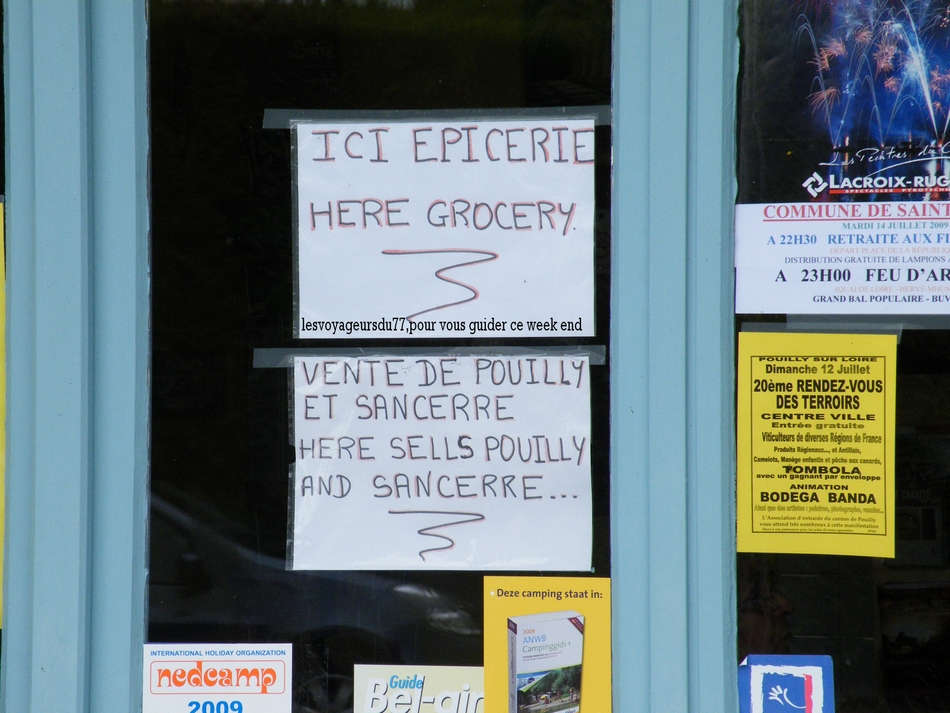 ICI EPICERIE
HERE GROCERY.
lesvoyageursdu77,pour vous guider ce week end
VENTE DE POUILLY
ET SANCERRE
HERE SELLS POUILLY
AND SANCERRE...
INTERNATIONAL HOLIDAY ORGANIZATION
nedcamp
2009
Guide
Bel-air
Deze camping staat in:
2009
ANWB
Campinggids 1
Les Peintres du
LACROIX-RUG
SPECTACLES PYROTECHN
COMMUNE DE SAINT
MARDI 14 JUILLET 2009
A 22H30 RETRAITE AUX FL
DÉPART PLACE DE LA RÉPUBLIQ
DISTRIBUTION GRATUITE DE LAMPIONS
A 23H00 FEU D'AR
(QUAI DE LOIRE - HERVÉ MHUN
GRAND BAL POPULAIRE - BUV
POUILLY SUR LOIRE
Dimanche 12 Juillet
20ème RENDEZ-VOUS
DES TERROIRS
CENTRE VILLE
Entrée gratuite
Viticulteurs de diverses Régions de France
Produits Régionaux..., et Antillais,
Camelots, Manège enfantin et pêche aux canards,
TOMBOLA
avec un gagnant par enveloppe
ANIMATION
BODEGA BANDA
Ainsi que des artistes : peintres, photographe, vannier...
L'Association d'entraide du canton de Pouilly
vous attend très nombreux à cette manifestation